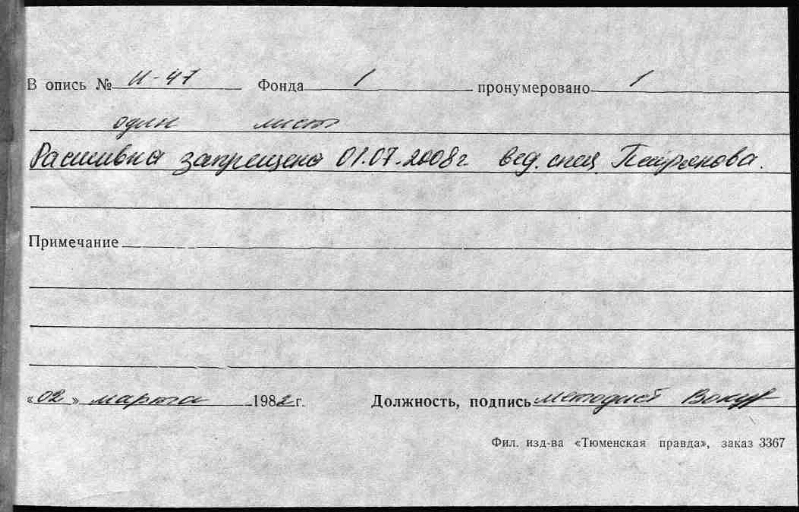 В опись № И-47 Фонда 1 пронумеровано 1
один лист
Расшивка запрещена 01.07.2008г. вед. спец.
Примечание
«02» марта 1982 г. Должность, подпись методист
Фил. изд-ва «Тюменская правда», заказ 3367